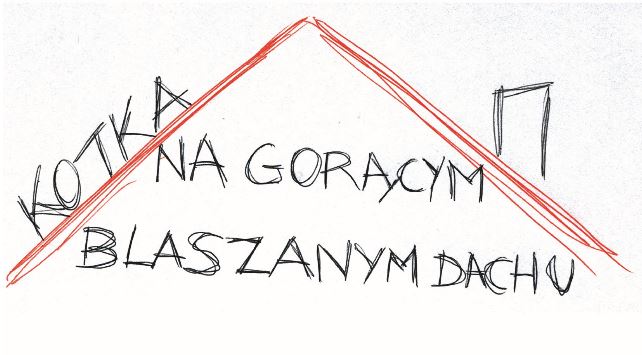 KOTKA
NA GORĄCYM
BLASZANYM DACHU